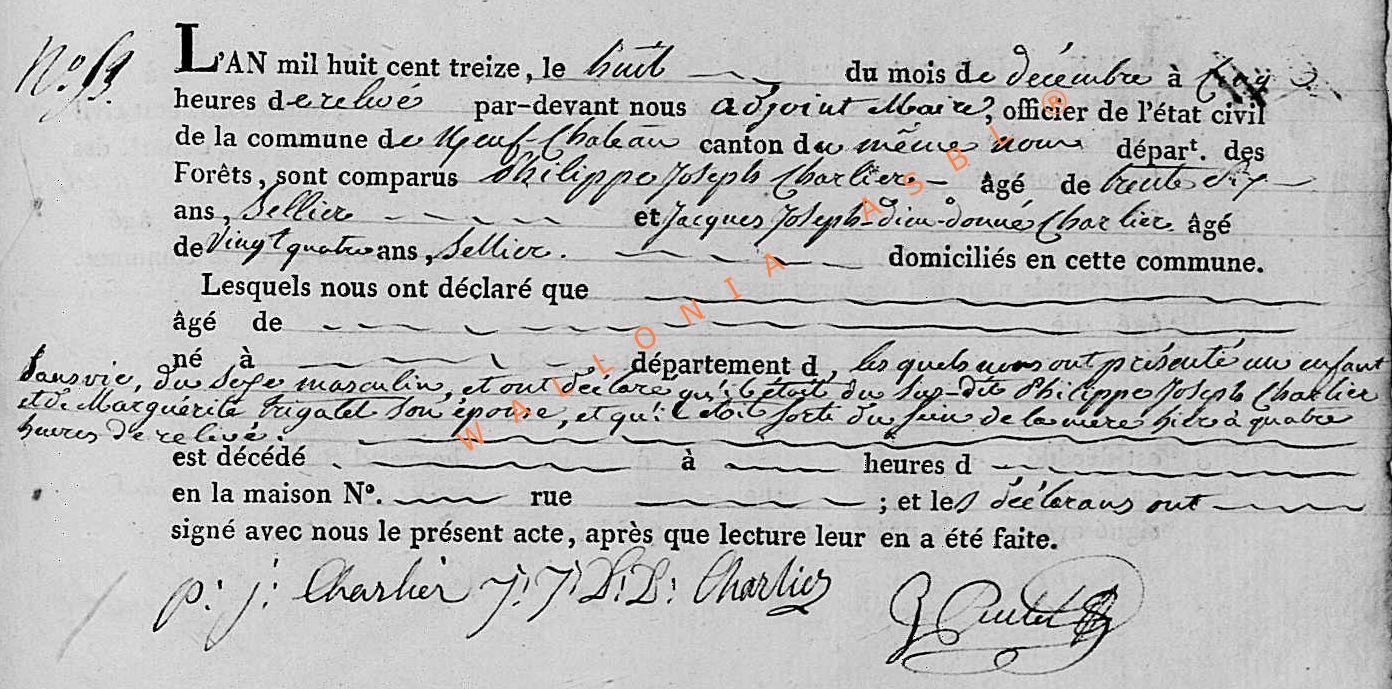 L'AN mil huit cent treize, le huit du mois de décembre à
heures de relevé par-devant nous adjoint Maire, officier de l'état civil
de la commune de Neuf-Chateau canton du même nom départ. des
Forêts, sont comparus Philippe Joseph Charlier âgé de trente six
ans, Sellier et Jacques Joseph-dieu-donné Charlier âgé
de Vingt quatre ans, Sellier. domiciliés en cette commune.
Lesquels nous ont déclaré que
âgé de
né à département d, les quels nous ont présenté un enfant
Sans vie, du Sexe masculin, et ont déclaré qu'il étoit du Sus-dit Philippe Joseph Charlier
et de Marguérite Trigalet Son épouse, et qu'il etoit sorti du sein de la mere hier à quatre
heures de relivé.
est décédé à heures d
en la maison Nº. rue ; et les déclarans ont
signé avec nous le présent acte, après que lecture leur en a été faite.
p: j: Charlier J: J: D: D: Charlier
WALLONIA ASBL ®